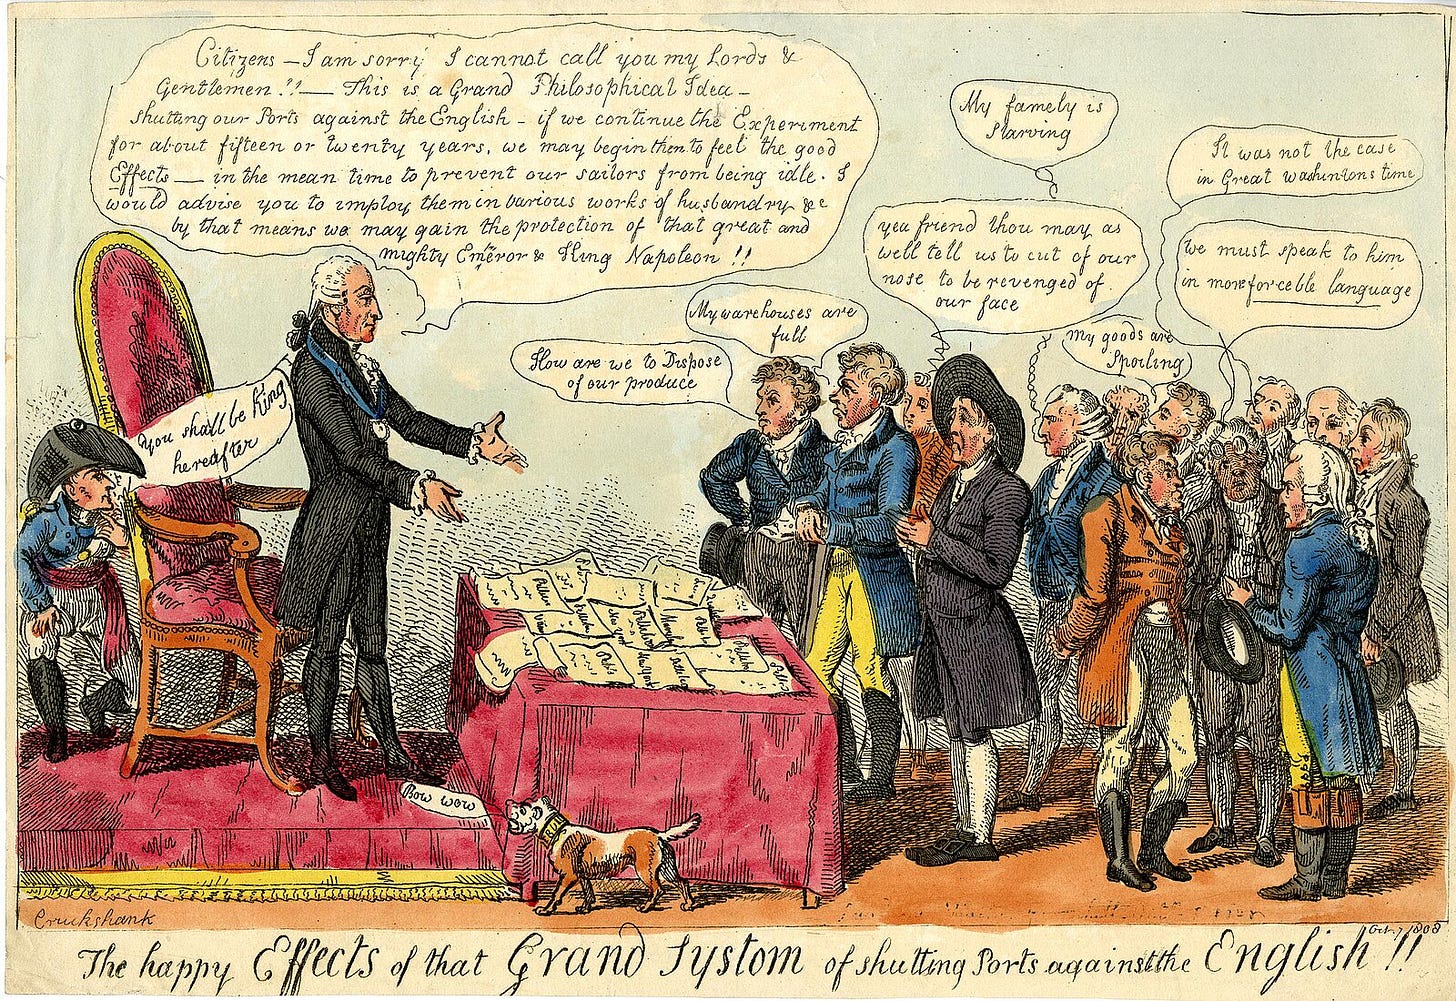 Citizens — I am sorry I cannot call you my Lords &
Gentlemen!! — This is a Grand Philosophical Idea —
shutting our Ports against the English — if we continue the Experiment
for about fifteen or twenty years, we may begin them to feel the good
Effects — in the mean time to prevent our sailors from being idle. I
would advise you to imploy them in various works of husbandry &c
by that means we may gain the protection of that great and
mighty Emperor & King Napoleon !!
You shall be King
hereafter
How are we to Dispose
of our produce
My warehouses are
full
yea friend thou may as
well tell us to cut of our
nose to be revenged of
our face
My famely is
starving
My goods are
Spoiling
It was not the case
in Great Washintons time
we must speak to him
in more forceble language
Bow wow
Cruckshank
Oct. 7 1808
The happy Effects of that Grand Systom of shutting Ports against the English !!